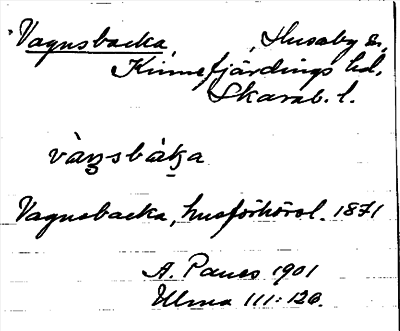 Vagnsbacka, Husaby sn,
Kinnefjärdings hd.
Skarab. l.
Vagnsbacka, husförhörsl. 1871
A. Paues 1901
Ulma 111:126.